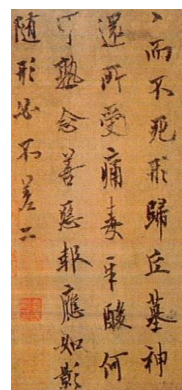 而不死形歸丘墓神
還所受痛毒辛酸何
可熟念善惡報應如影
随形必不差二